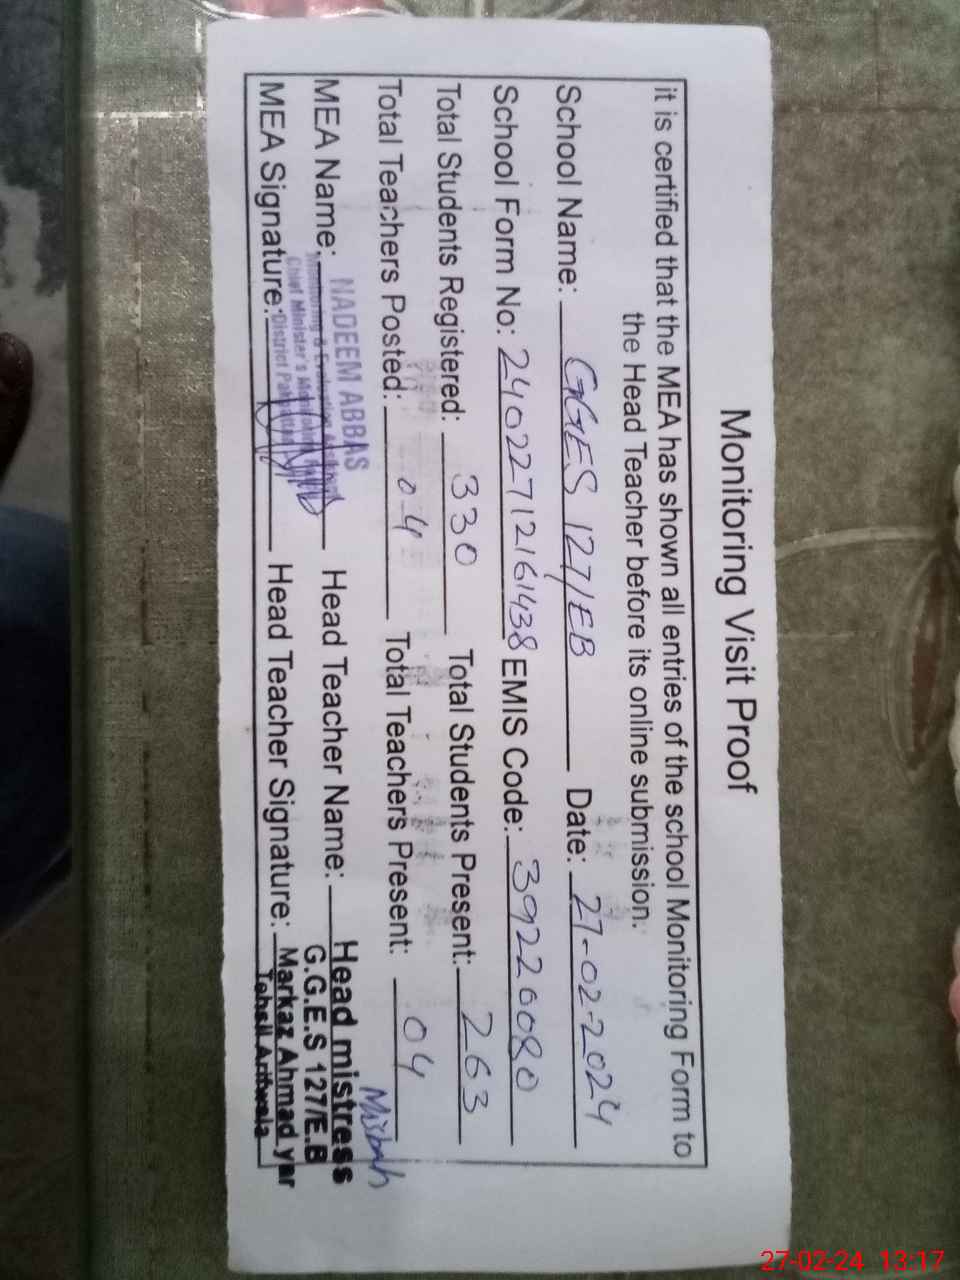 Monitoring Visit Proof
it is certified that the MEA has shown all entries of the school Monitoring Form to
the Head Teacher before its online submission.
School Name: GGES 127/EB Date: 27-02-2024
School Form No: 24022712161438 EMIS Code: 39220080
Total Students Registered: 330 Total Students Present: 263
Total Teachers Posted: 04 Total Teachers Present: 04
Misbah
MEA Name: NADEEM ABBAS Head Teacher Name: Head mistress
Monitoring & Evaluation Assistant G.G.E.S 127/E.B
Chief Minister's Monitoring
MEA Signature: District Pakpattan Head Teacher Signature: Markaz Ahmad yar
Tehsil Arifwala
27-02-24 13:17